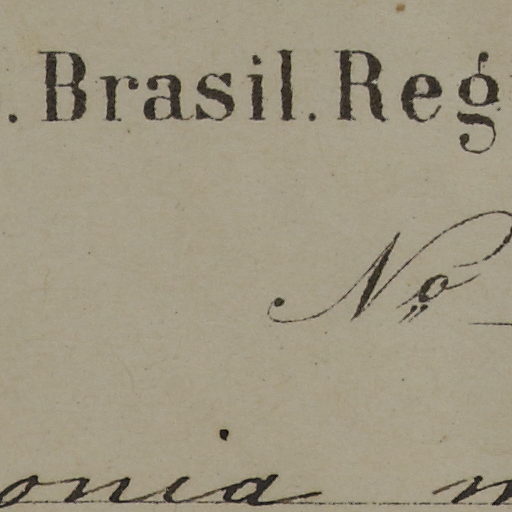 . Brasil. Reg
No
onia